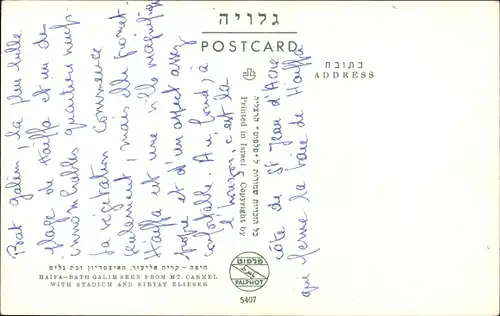 גלויה
POSTCARD
כתובת
ADDRESS
Bat galim, la plus belle
plage de Haïffa et un des
innombrables quartiers neufs.
La végétation commence
seulement, mais elle promet.
Haïffa est une ville magnifique
propre et d'un aspect assez
confortable. Au fond, à
l'horizon, c'est la
côte de St Jean d'Acre
qui ferme la baie de Haïffa
כל הזכויות שמורות ל״פלפוט״ הרצליה
Printed in Israel & Copyright by
חיפה - קרית אליעזר, האיצטדיון ובת גלים
HAIFA-BATH GALIM SEEN FROM MT. CARMEL
WITH STADIUM AND KIRYAT ELIESER
פלפוט
PALPHOT
5407